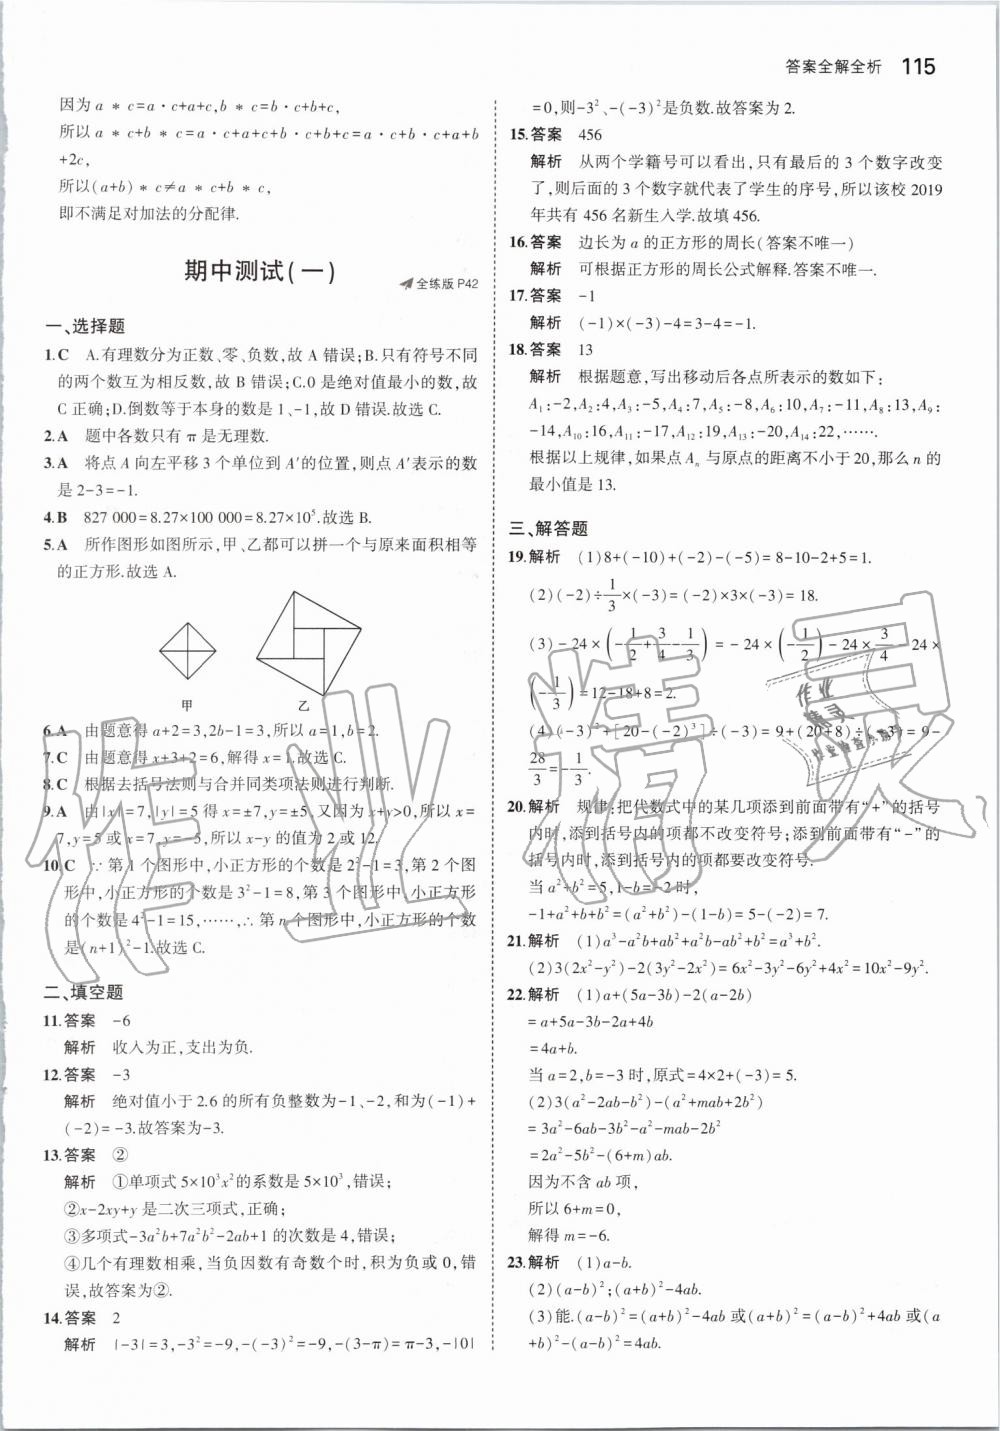 答案全解全析 115
因为a * c=a·c+a+c,b * c=b·c+b+c,
所以a * c+b * c=a·c+a+c+b·c+b+c=a·c+b·c+a+b
+2c,
所以(a+b) * c≠a * c+b * c,
即不满足对加法的分配律.
期中测试(一)
全练版 P42
一、选择题
1.C A.有理数分为正数、零、负数,故A错误;B.只有符号不同
的两个数互为相反数,故B错误;C.0是绝对值最小的数,故
C正确;D.倒数等于本身的数是1、-1,故D错误.故选C.
2.A 题中各数只有π是无理数.
3.A 将点A向左平移3个单位到A′的位置,则点A′表示的数
是2-3=-1.
4.B 827 000=8.27×100 000=8.27×10⁵.故选B.
5.A 所作图形如图所示,甲、乙都可以拼一个与原来面积相等
的正方形.故选A.
甲 乙
6.A 由题意得a+2=3,2b-1=3,所以a=1,b=2.
7.C 由题意得x+3+2=6,解得x=1.故选C.
8.C 根据去括号法则与合并同类项法则进行判断.
9.A 由|x|=7,|y|=5得x=±7,y=±5,又因为x+y>0,所以x=
7,y=5或x=7,y=-5,所以x-y的值为2或12.
10.C ∵第1个图形中,小正方形的个数是2²-1=3,第2个图
形中,小正方形的个数是3²-1=8,第3个图形中,小正方形
的个数是4²-1=15,……,∴第n个图形中,小正方形的个数
是(n+1)²-1.故选C.
二、填空题
11.答案 -6
解析 收入为正,支出为负.
12.答案 -3
解析 绝对值小于2.6的所有负整数为-1、-2,和为(-1)+
(-2)=-3.故答案为-3.
13.答案 ②
解析 ①单项式5×10³x²的系数是5×10³,错误;
②x-2xy+y是二次三项式,正确;
③多项式-3a²b+7a²b²-2ab+1的次数是4,错误;
④几个有理数相乘,当负因数有奇数个时,积为负数或0,错
误,故答案为②.
14.答案 2
解析 |-3|=3,-3²=-9,-(-3)²=-9,-(3-π)=π-3,-|0|
=0,则-3²、-(-3)²是负数.故答案为2.
15.答案 456
解析 从两个学籍号可以看出,只有最后的3个数字改变
了,则后面的3个数字就代表了学生的序号,所以该校2019
年共有456名新生入学.故填456.
16.答案 边长为a的正方形的周长(答案不唯一)
解析 可根据正方形的周长公式解释.答案不唯一.
17.答案 -1
解析 (-1)×(-3)-4=3-4=-1.
18.答案 13
解析 根据题意,写出移动后各点所表示的数如下:
A₁:-2,A₂:4,A₃:-5,A₄:7,A₅:-8,A₆:10,A₇:-11,A₈:13,A₉:
-14,A₁₀:16,A₁₁:-17,A₁₂:19,A₁₃:-20,A₁₄:22,…….
根据以上规律,如果点Aₙ与原点的距离不小于20,那么n的
最小值是13.
三、解答题
19.解析 (1)8+(-10)+(-2)-(-5)=8-10-2+5=1.
(2)(-2)÷1/3×(-3)=(-2)×3×(-3)=18.
(3)-24×(-1/2+3/4-1/3)=-24×(-1/2)-24×3/4-24×
(-1/3)=12-18+8=2.
(4)(-3)²+[20-(-2)³]÷(-3)=9+(20+8)÷(-3)=9-
28/3=-1/3.
20.解析 规律:把代数式中的某几项添到前面带有“+”的括号
内时,添到括号内的项都不改变符号;添到前面带有“-”的
括号内时,添到括号内的项都要改变符号.
当a²+b²=5,1-b=-2时,
-1+a²+b+b²=(a²+b²)-(1-b)=5-(-2)=7.
21.解析 (1)a³-a²b+ab²+a²b-ab²+b²=a³+b².
(2)3(2x²-y²)-2(3y²-2x²)=6x²-3y²-6y²+4x²=10x²-9y².
22.解析 (1)a+(5a-3b)-2(a-2b)
=a+5a-3b-2a+4b
=4a+b.
当a=2,b=-3时,原式=4×2+(-3)=5.
(2)3(a²-2ab-b²)-(a²+mab+2b²)
=3a²-6ab-3b²-a²-mab-2b²
=2a²-5b²-(6+m)ab.
因为不含ab项,
所以6+m=0,
解得m=-6.
23.解析 (1)a-b.
(2)(a-b)²;(a+b)²-4ab.
(3)能.(a-b)²=(a+b)²-4ab或(a+b)²=(a-b)²+4ab或(a
+b)²-(a-b)²=4ab.
作业精灵